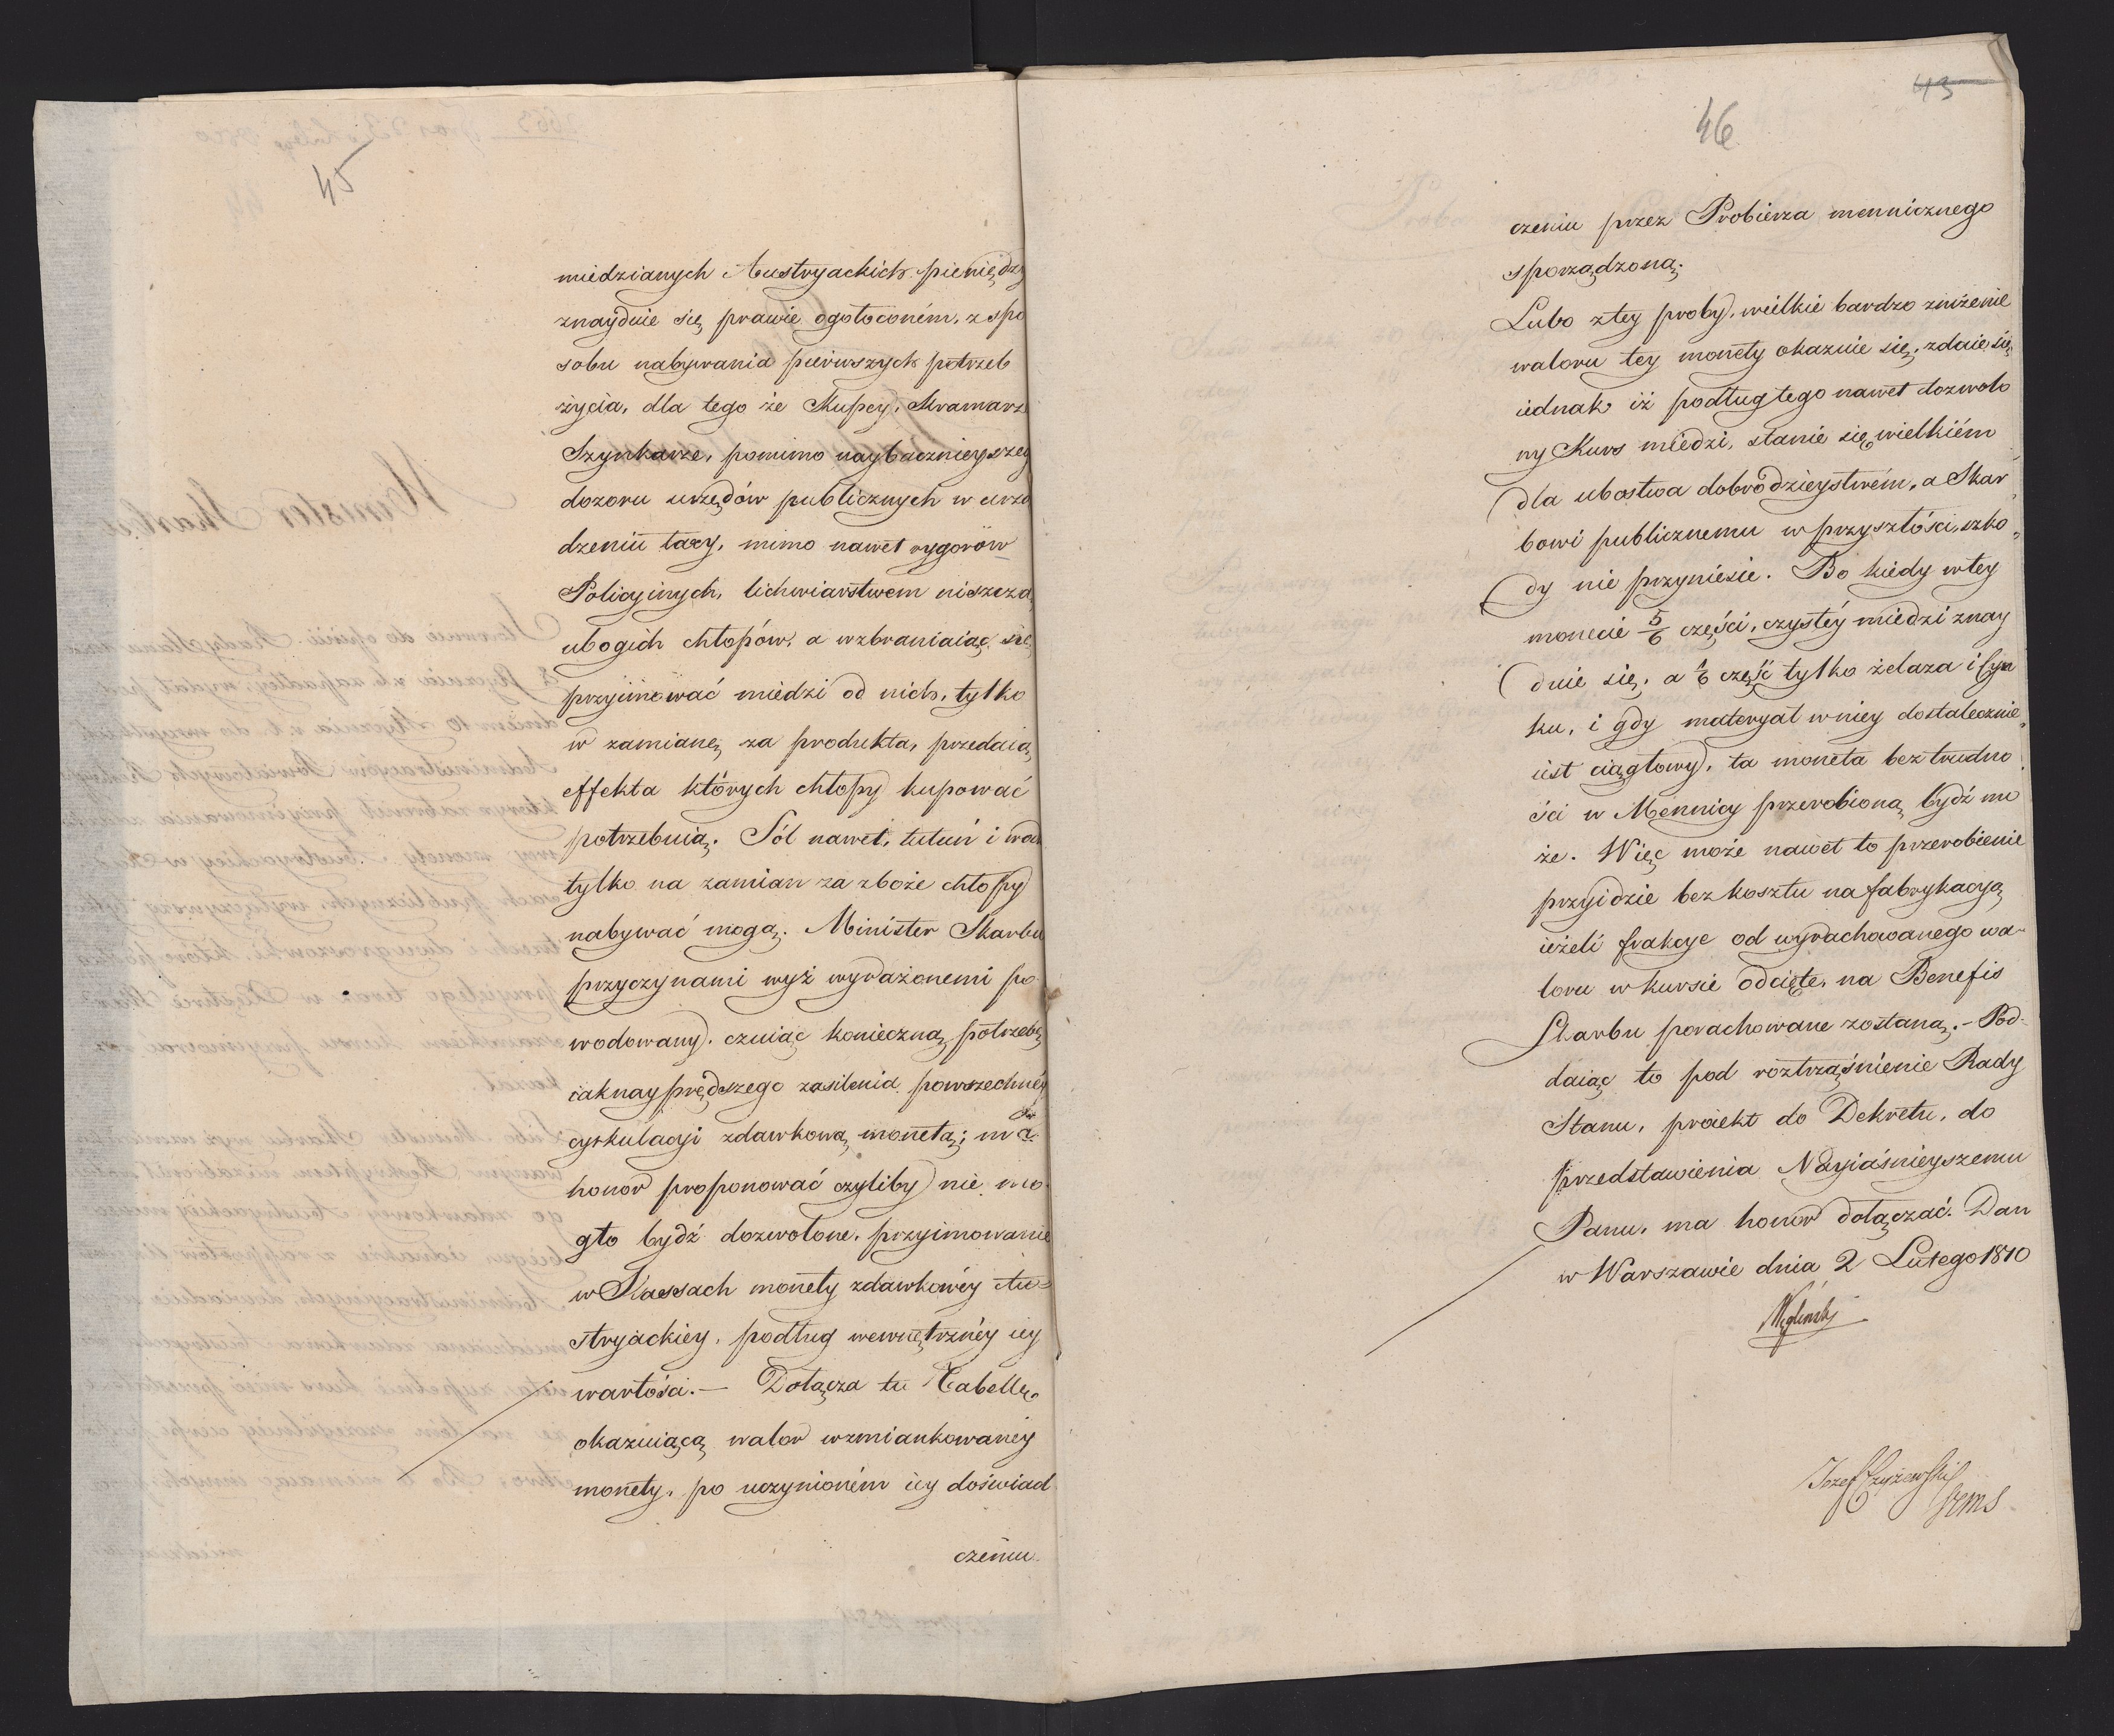 45
miedzianych Austryackich pieniędzy
znayduie się prawie ogołoconém, z spo
sobu nabywania pierwszych potrzeb
życia, dla tego że Kupcy, Kramarze
Szynkarze, pomimo naybacznieyszego
dozoru urzędów publicznych w urzą
dzeniu taxy, mimo nawet rygorów
Policyinych, lichwiarstwem niszczą
ubogich chłopów, a wzbraniaiąc się
przyimować miedzi od nich, tylko
w zamianę za produkta, przedaią
effekta których chłopy kupować
potrzebuią. Sól nawet, tutuń i wód
tylko na zamian za zboże chłopy
nabywać mogą. Minister Skarbu
przyczynami wyż wyrażonemi po
wodowany, czuiąc konieczną potrzebę
iaknayprędszego zasilenia powszechnéy
cyrkulacyi zdawkową monetą; ma
honor proponować czyliby nie mo
gło bydź dozwolone, przyimowanie
w Kassach monety zdawkowéy Au=
stryackiey, podług wewnętrznéy iey
wartości.— Dołącza tu Tabellę
okazuiącą walor wzmiankowanéy
monety, po uczynioném iey doświad
czeniu.
43
46
czeniu przez Probierza mennicznego
sporządzoną.
Lubo z tey proby, wielkie bardzo zniżenie
waloru tey monety okazuie się, zdaie się
iednak iż podług tego nawet dozwolo
ny Kurs miedzi, stanie się wielkiém
dla ubostwa dobrodzieystwém, a Skar
bowi publicznemu w przyszłości, szko
dy nie przyniesie. Bo kiedy w tey
monecie 5/6 części, czystéy miedzi znay
duie się, a 1/6 część tylko żelaza i Cyn
ku, i gdy materyał w niey dostatecznie
iest ciągłowy, ta moneta bez trudno
ści w Mennicy przerobioną bydź mo
że. Więc może nawet to przerobienie
przyidzie bez kosztu na fabrykacyą
ieżeli frakcye od wyrachowanego wa-
loru w kursie odcięte, na Benefis
Skarbu porachowane zostaną.— Pod=
daiąc to pod roztrząśnienie Rady
Stanu, proiekt do Dekretu, do
przedstawienia Nayiaśnieyszemu
Panu, ma honor dołączać. Dan
w Warszawie dnia 2 Lutego 1810
Węgleński
Jozef Czyżewski